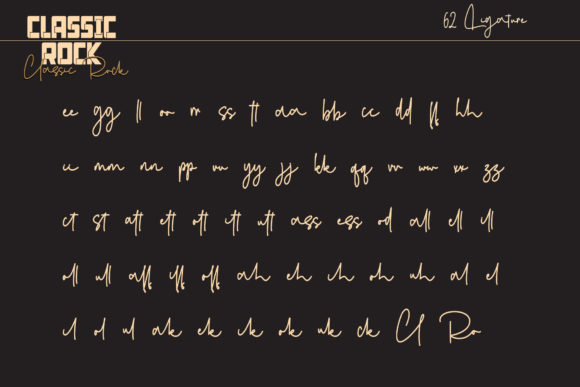 CLASSIC
ROCK
Classic Rock
62 Ligature
ee gg ll oo rr ss tt aa bb cc dd ff hh
ii mm nn pp uu yy jj kk qq vv ww xx zz
ct st att ett ott itt utt ass ess od all ell ill
oll ull aff iff off ah eh ih oh uh al el
il ol ul ak ek ik ok uk ck Cl Ro